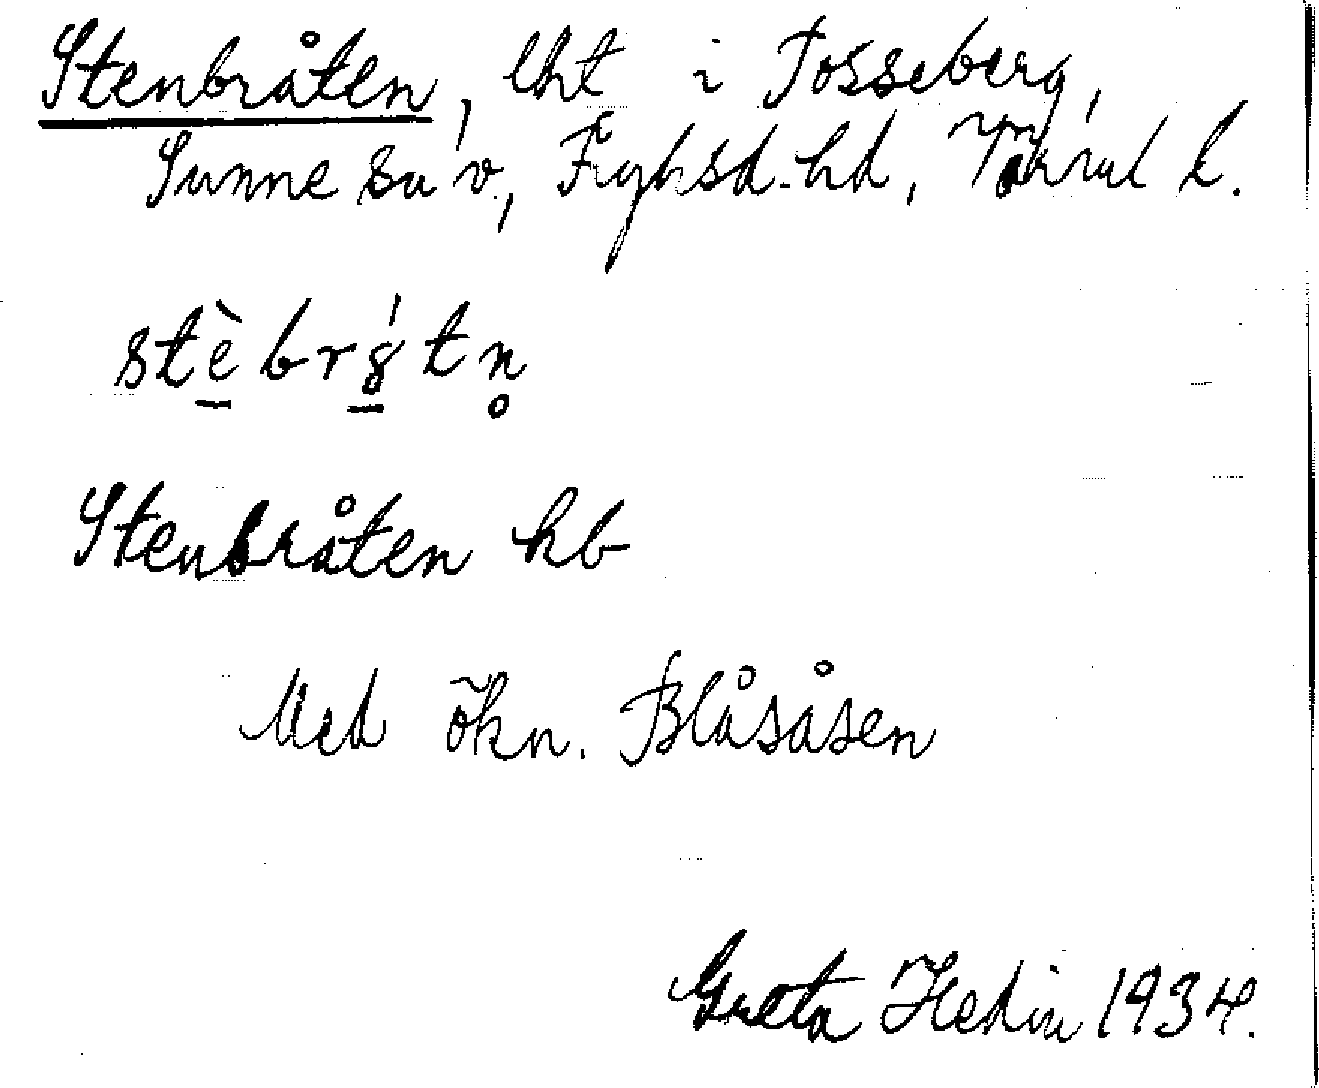 Stenbråten, lht i Tosseberg,
Sunne sn, Fryksd. hd, Värml l.
Stenbråten kb
Med ökn. Blåsåsen
Greta Hedin 1934.